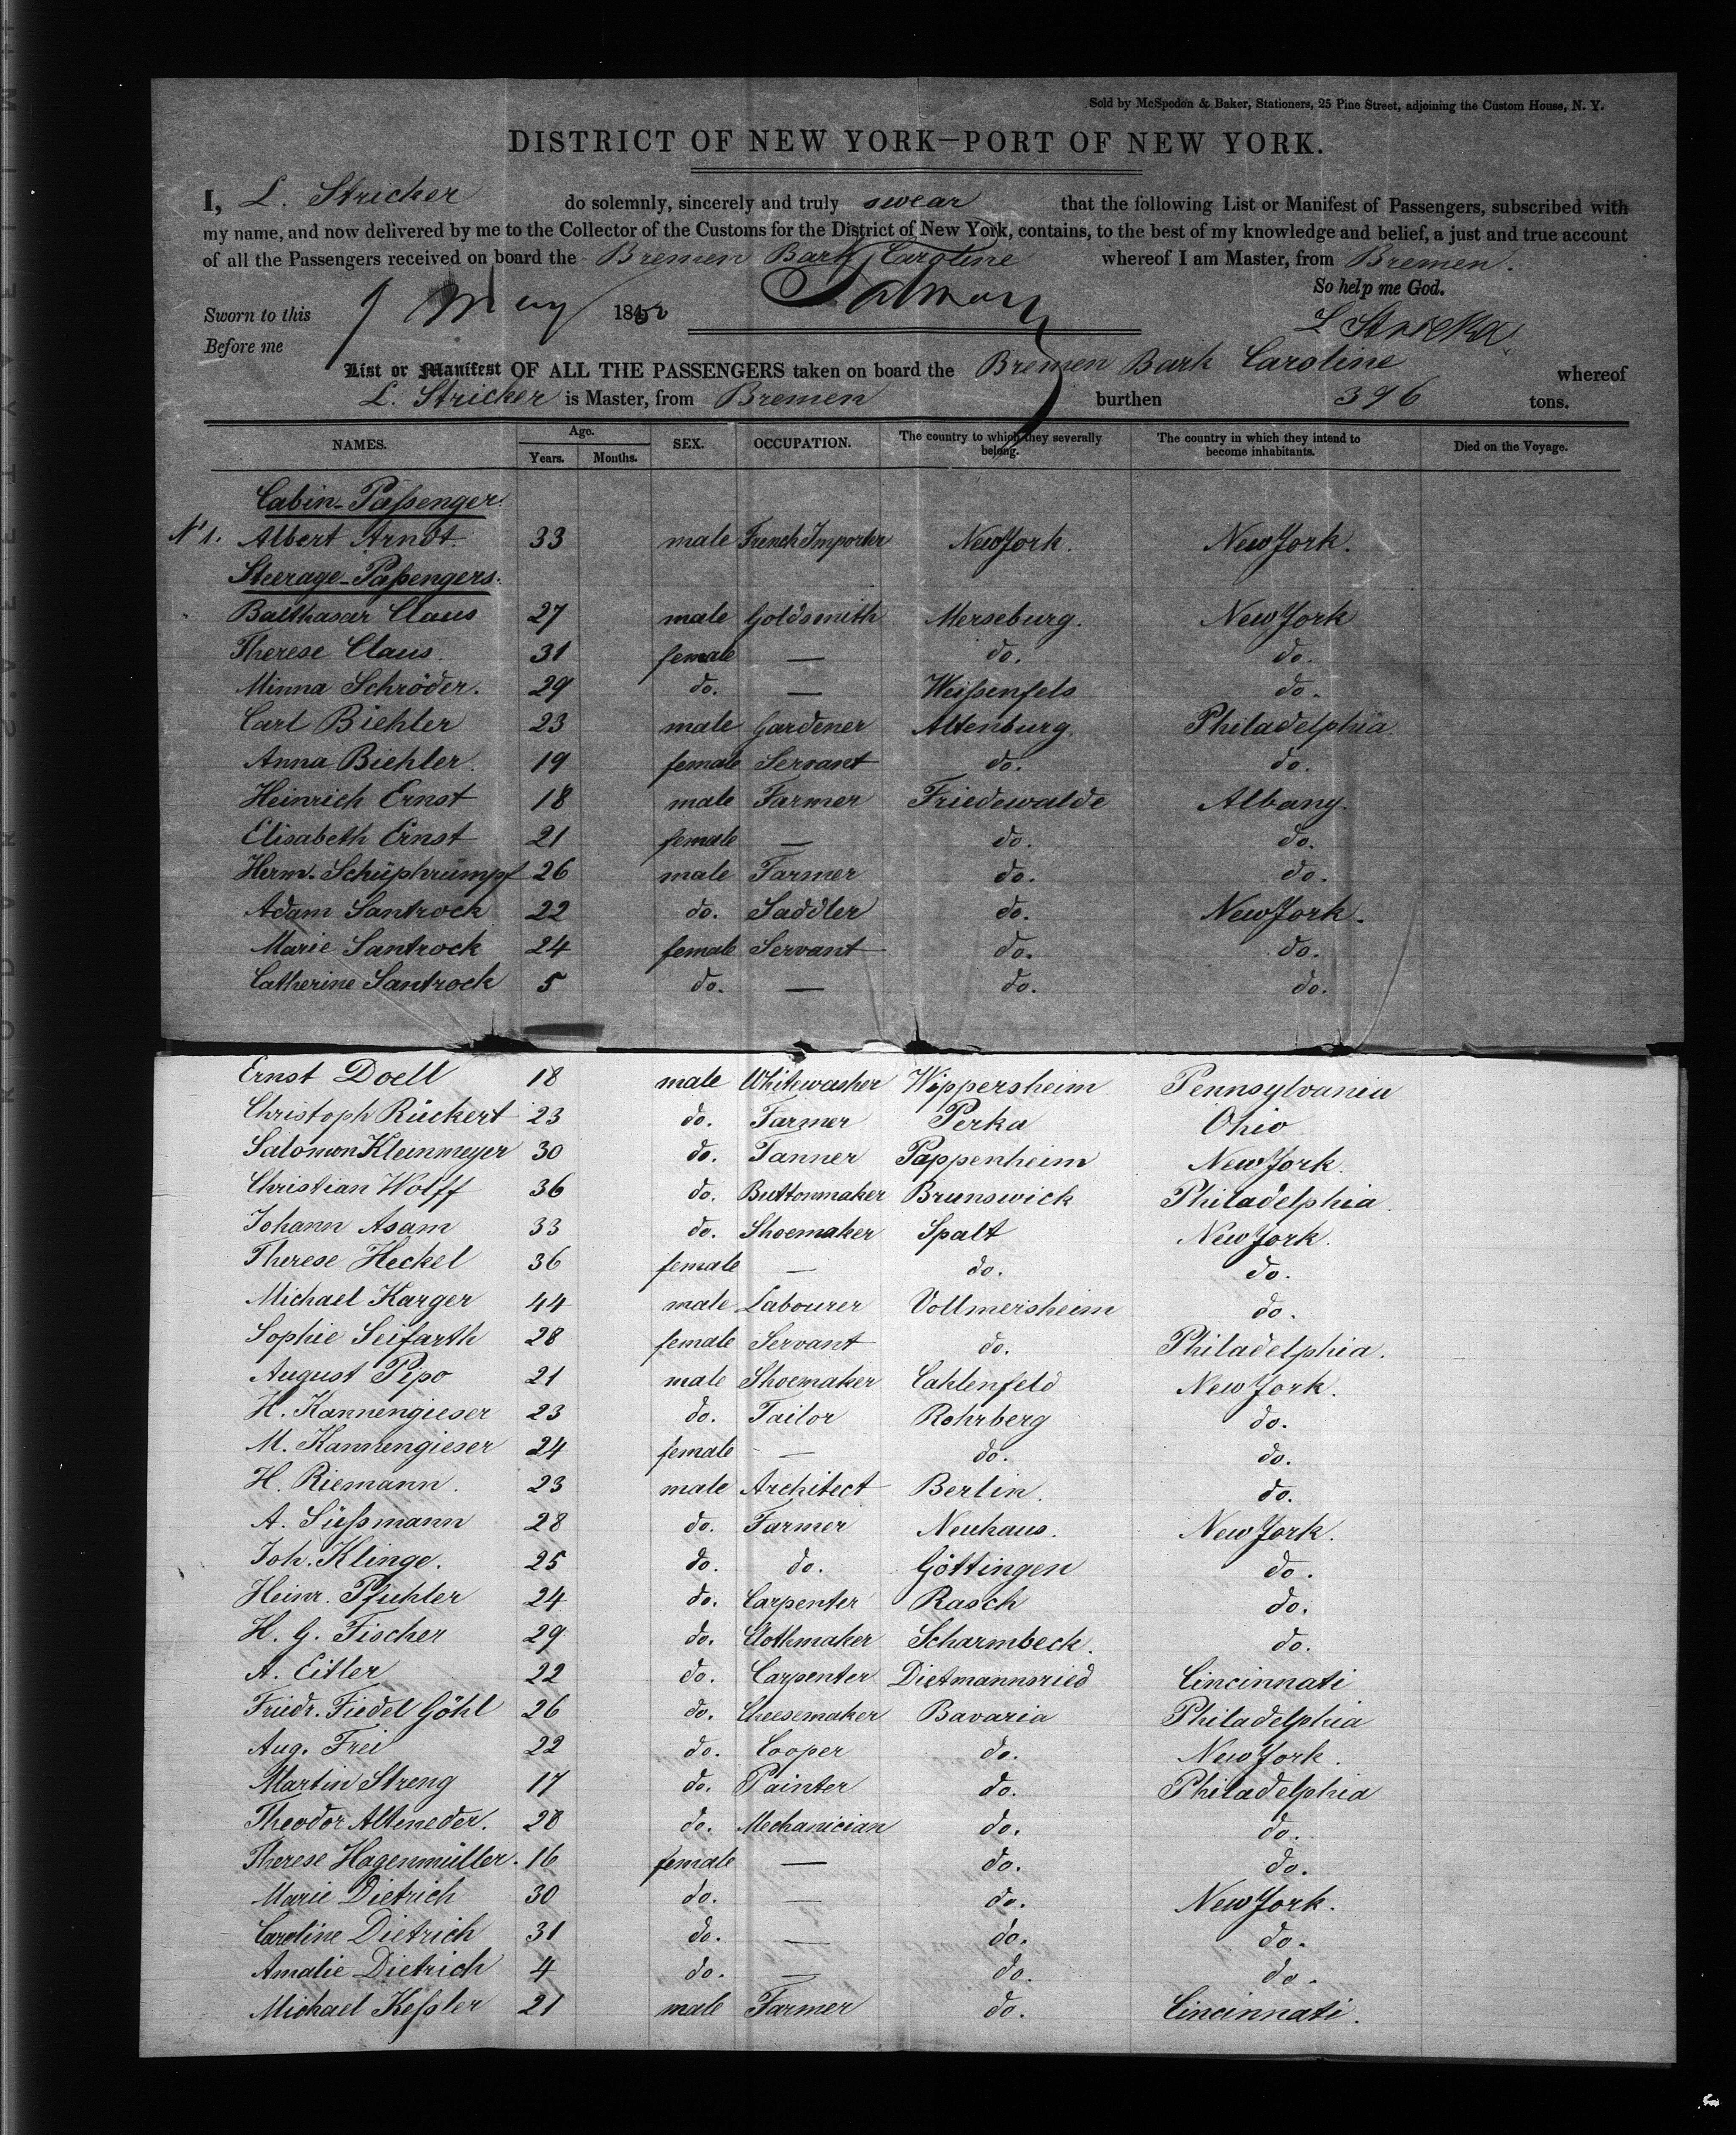 Sold by McSpedon & Baker, Stationers, 25 Pine Street, adjoining the Custom House, N. Y.
DISTRICT OF NEW YORK—PORT OF NEW YORK.
I, L. Stricker do solemnly, sincerely and truly swear that the following List or Manifest of Passengers, subscribed with
my name, and now delivered by me to the Collector of the Customs for the District of New York, contains, to the best of my knowledge and belief, a just and true account
of all the Passengers received on board the Bremen Bark Caroline whereof I am Master, from Bremen.
So help me God.
Sworn to this 7 May 1852
L Stricker
Before me
List or Manifest OF ALL THE PASSENGERS taken on board the Bremen Bark Caroline whereof
L. Stricker is Master, from Bremen burthen 396 tons.
NAMES. Age. Years. Months. SEX. OCCUPATION. The country to which they severally belong. The country in which they intend to become inhabitants. Died on the Voyage.
Cabin-Paßenger.
No 1. Albert Arndt. 33 male French Importer New York. New York.
Steerage-Paßengers.
Balthasar Claus 27 male Goldsmith Merseburg. New York
Therese Claus. 31 female — do. do.
Minna Schröder. 29 do. — Weißenfels do.
Carl Biehler 23 male Gardener Altenburg. Philadelphia
Anna Biehler. 19 female Servant do. do.
Heinrich Ernst 18 male Farmer Friedewalde Albany.
Elisabeth Ernst 21 female — do. do.
Herm. Schüphrümpf 26 male Farmer do. do.
Adam Santrock 22 do. Saddler do. New York.
Marie Santrock 24 female Servant do. do.
Catherine Santrock 5 do. — do. do.
Ernst Doell 18 male Whitewasher Wippersheim Pennsylvania
Christoph Rückert 23 do. Farmer Perka Ohio
Salomon Kleinmeyer 30 do. Tanner Pappenheim New York.
Christian Wolff 36 do. Buttonmaker Brunswick Philadelphia.
Johann Asam 33 do. Shoemaker Spalt New York.
Therese Heckel 36 female — do. do.
Michael Karger 44 male Labourer Vollmersheim do.
Sophie Seifarth 28 female Servant do. Philadelphia.
August Pipo 21 male Shoemaker Cahlenfeld New York.
H. Kannengieser 23 do. Tailor Rohrberg do.
M. Kannengieser 24 female — do. do.
H. Riemann. 23 male Architect Berlin. do.
A. Süßmann 28 do. Farmer Neuhaus. New York.
Joh. Klinge. 25 do. do. Göttingen do.
Heinr. Pfuhler 24 do. Carpenter Rasch do.
H. G. Fischer 29 do. Clothmaker Scharmbeck. do.
A. Eitler 22 do. Carpenter Dietmannsried Cincinnati
Friedr. Fiedel Göhl 26 do. Cheesemaker Bavaria Philadelphia
Aug. Frei 22 do. Cooper do. New York.
Martin Streng 17 do. Painter do. Philadelphia
Theodor Alteneder. 28 do. Mechanician do. do.
Therese Hagenmüller. 16 female — do. do.
Marie Dietrich 30 do. — do. New York.
Caroline Dietrich 31 do. — do. do.
Amalie Dietrich 4 do. — do. do.
Michael Keßler 21 male Farmer do. Cincinnati.